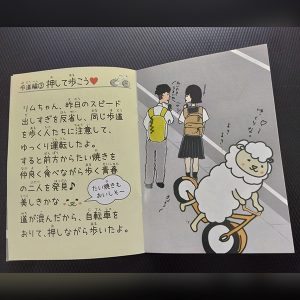 歩道編② 押して歩こう♥
リムちゃん、昨日のスピード
出しすぎを反省し、同じ歩道
を歩く人たちに注意して、
ゆっくり運転したよ。
すると前方からたい焼きを
仲良く食べながら歩く青春
の二人を発見♪
美しきかな
たい焼きも
おいしそー
道が混んだから、自転車を
おりて、押しながら歩いたよ。